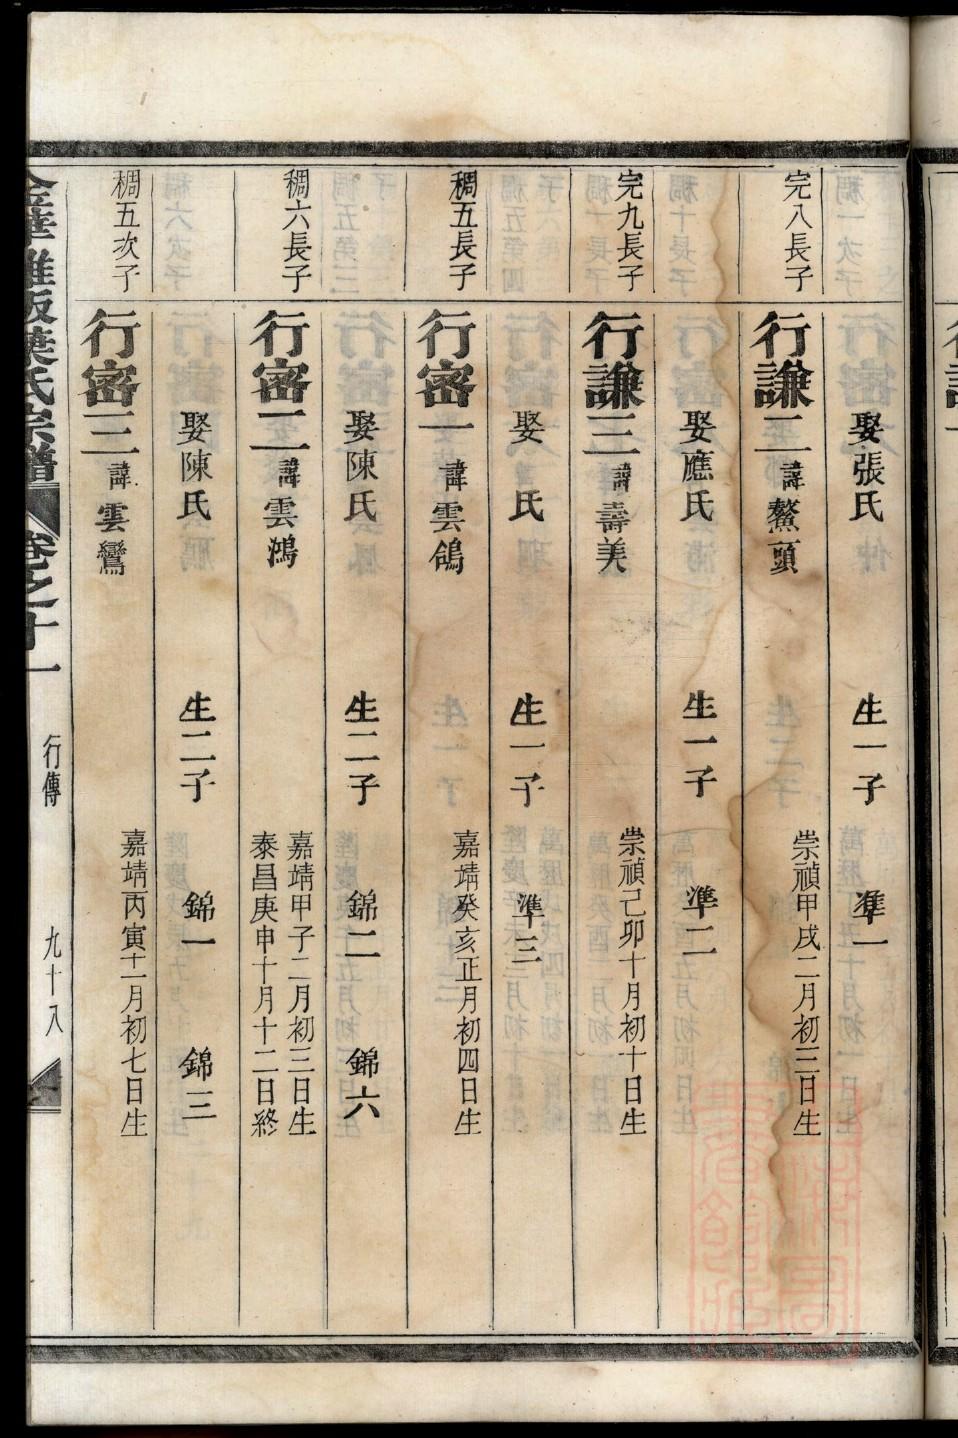 娶張氏 生一子 凖一
完八長子 行謙二 諱鰲頭 崇禎甲戌二月初三日生
娶應氏 生一子 凖二
完九長子 行謙三 諱壽美 崇禎己卯十月初十日生
娶 氏 生一子 凖三
稠五長子 行密一 諱雲鴿 嘉靖癸亥正月初四日生
娶陳氏 生二子 錦二 錦六
稠六長子 行密二 諱雲鴻 嘉靖甲子二月初三日生
泰昌庚申十月十二日終
娶陳氏 生二子 錦一 錦三
稠五次子 行密三 諱雲鸞 嘉靖丙寅十二月初七日生
金華雅坂葉氏宗譜 卷之十一 行傳 九十八